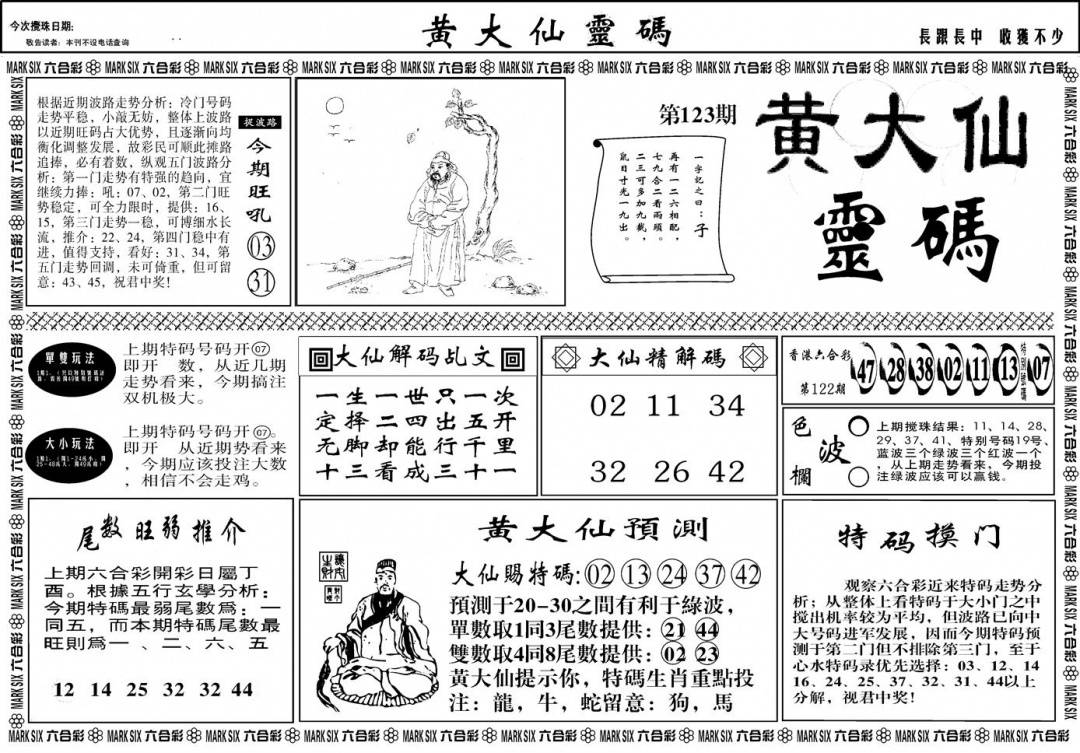 今次攪珠日期:
敬告读者: 本刊不设电话查询
黄大仙靈碼
長跟長中 收獲不少
MARK SIX 六合彩 MARK SIX 六合彩 MARK SIX 六合彩 MARK SIX 六合彩 MARK SIX 六合彩 MARK SIX 六合彩 MARK SIX 六合彩 MARK SIX 六合彩 MARK SIX 六合彩 MARK SIX 六合彩 MARK SIX 六合彩
根据近期波路走势分析: 冷门号码
走势平稳, 小敲无妨, 整体上波路
以近期旺码占大优势, 且逐渐向均
衡化调整发展, 故彩民可顺此摊路
追捧, 必有着数, 纵观五门波路分
析: 第一门走势有特强的趋向, 宜
继续力捧: 吼: 07、02, 第二门旺
势稳定, 可全力限时, 提供: 16、
15, 第三门走势一稳, 可博细水长
流, 推介: 22、24, 第四门稳中有
进, 值得支持, 看好: 31、34, 第
五门走势回调, 未可倚重, 但可留
意: 43、45, 祝君中奖!
捉波路
今期旺吼
03
31
第123期
一字記之曰: 子
再有一二六相配,
七九合二看兩頭。
二三可多加九截,
鼠目寸光一九出。
黄大仙
靈碼
單雙玩法
上期特码号码开07
即开 数, 从近几期
走势看来, 今期搞注
双机极大。
大小玩法
上期特码号码开07。
即开 从近期势看来
, 今期应该投注大数
, 相信不会走鸡。
大仙解码乩文
一生一世只一次
定择二四出五开
无脚却能行千里
十三看成三十一
大仙精解碼
02 11 34
32 26 42
香港六合彩
第122期
47 28 38 02 11 13 特别號碼 07
色波欄
上期搅珠结果: 11、14、28、
29、37、41、特别号码19号、
蓝波三个绿波三个红波一个
, 从上期走势看来, 今期投
注绿波应该可以赢钱。
尾数旺弱推介
上期六合彩開彩日屬丁
酉。根據五行玄學分析:
今期特碼最弱尾數爲: 一
同五, 而本期特碼尾數最
旺則爲一 、二、六、五
12 14 25 32 32 44
黄大仙預測
大仙賜特碼: 02 13 24 37 42
預測于20-30之間有利于綠波,
單數取1同3尾數提供: 21 44
雙數取4同8尾數提供: 02 23
黄大仙提示你, 特碼生肖重點投
注: 龍, 牛, 蛇留意: 狗, 馬
特码摸门
观察六合彩近来特码走势分
析; 从整体上看特码于大小门之中
搅出机率较为平均, 但波路已向中
大号码进军发展, 因而今期特码预
测于第二门但不排除第三门, 至于
心水特码录优先选择: 03、12、14
16、24、25、37、32、31、44以上
分解, 视君中奖!
MARK SIX 六合彩 MARK SIX 六合彩 MARK SIX 六合彩 MARK SIX 六合彩 MARK SIX 六合彩 MARK SIX 六合彩 MARK SIX 六合彩 MARK SIX 六合彩 MARK SIX 六合彩 MARK SIX 六合彩 MARK SIX 六合彩